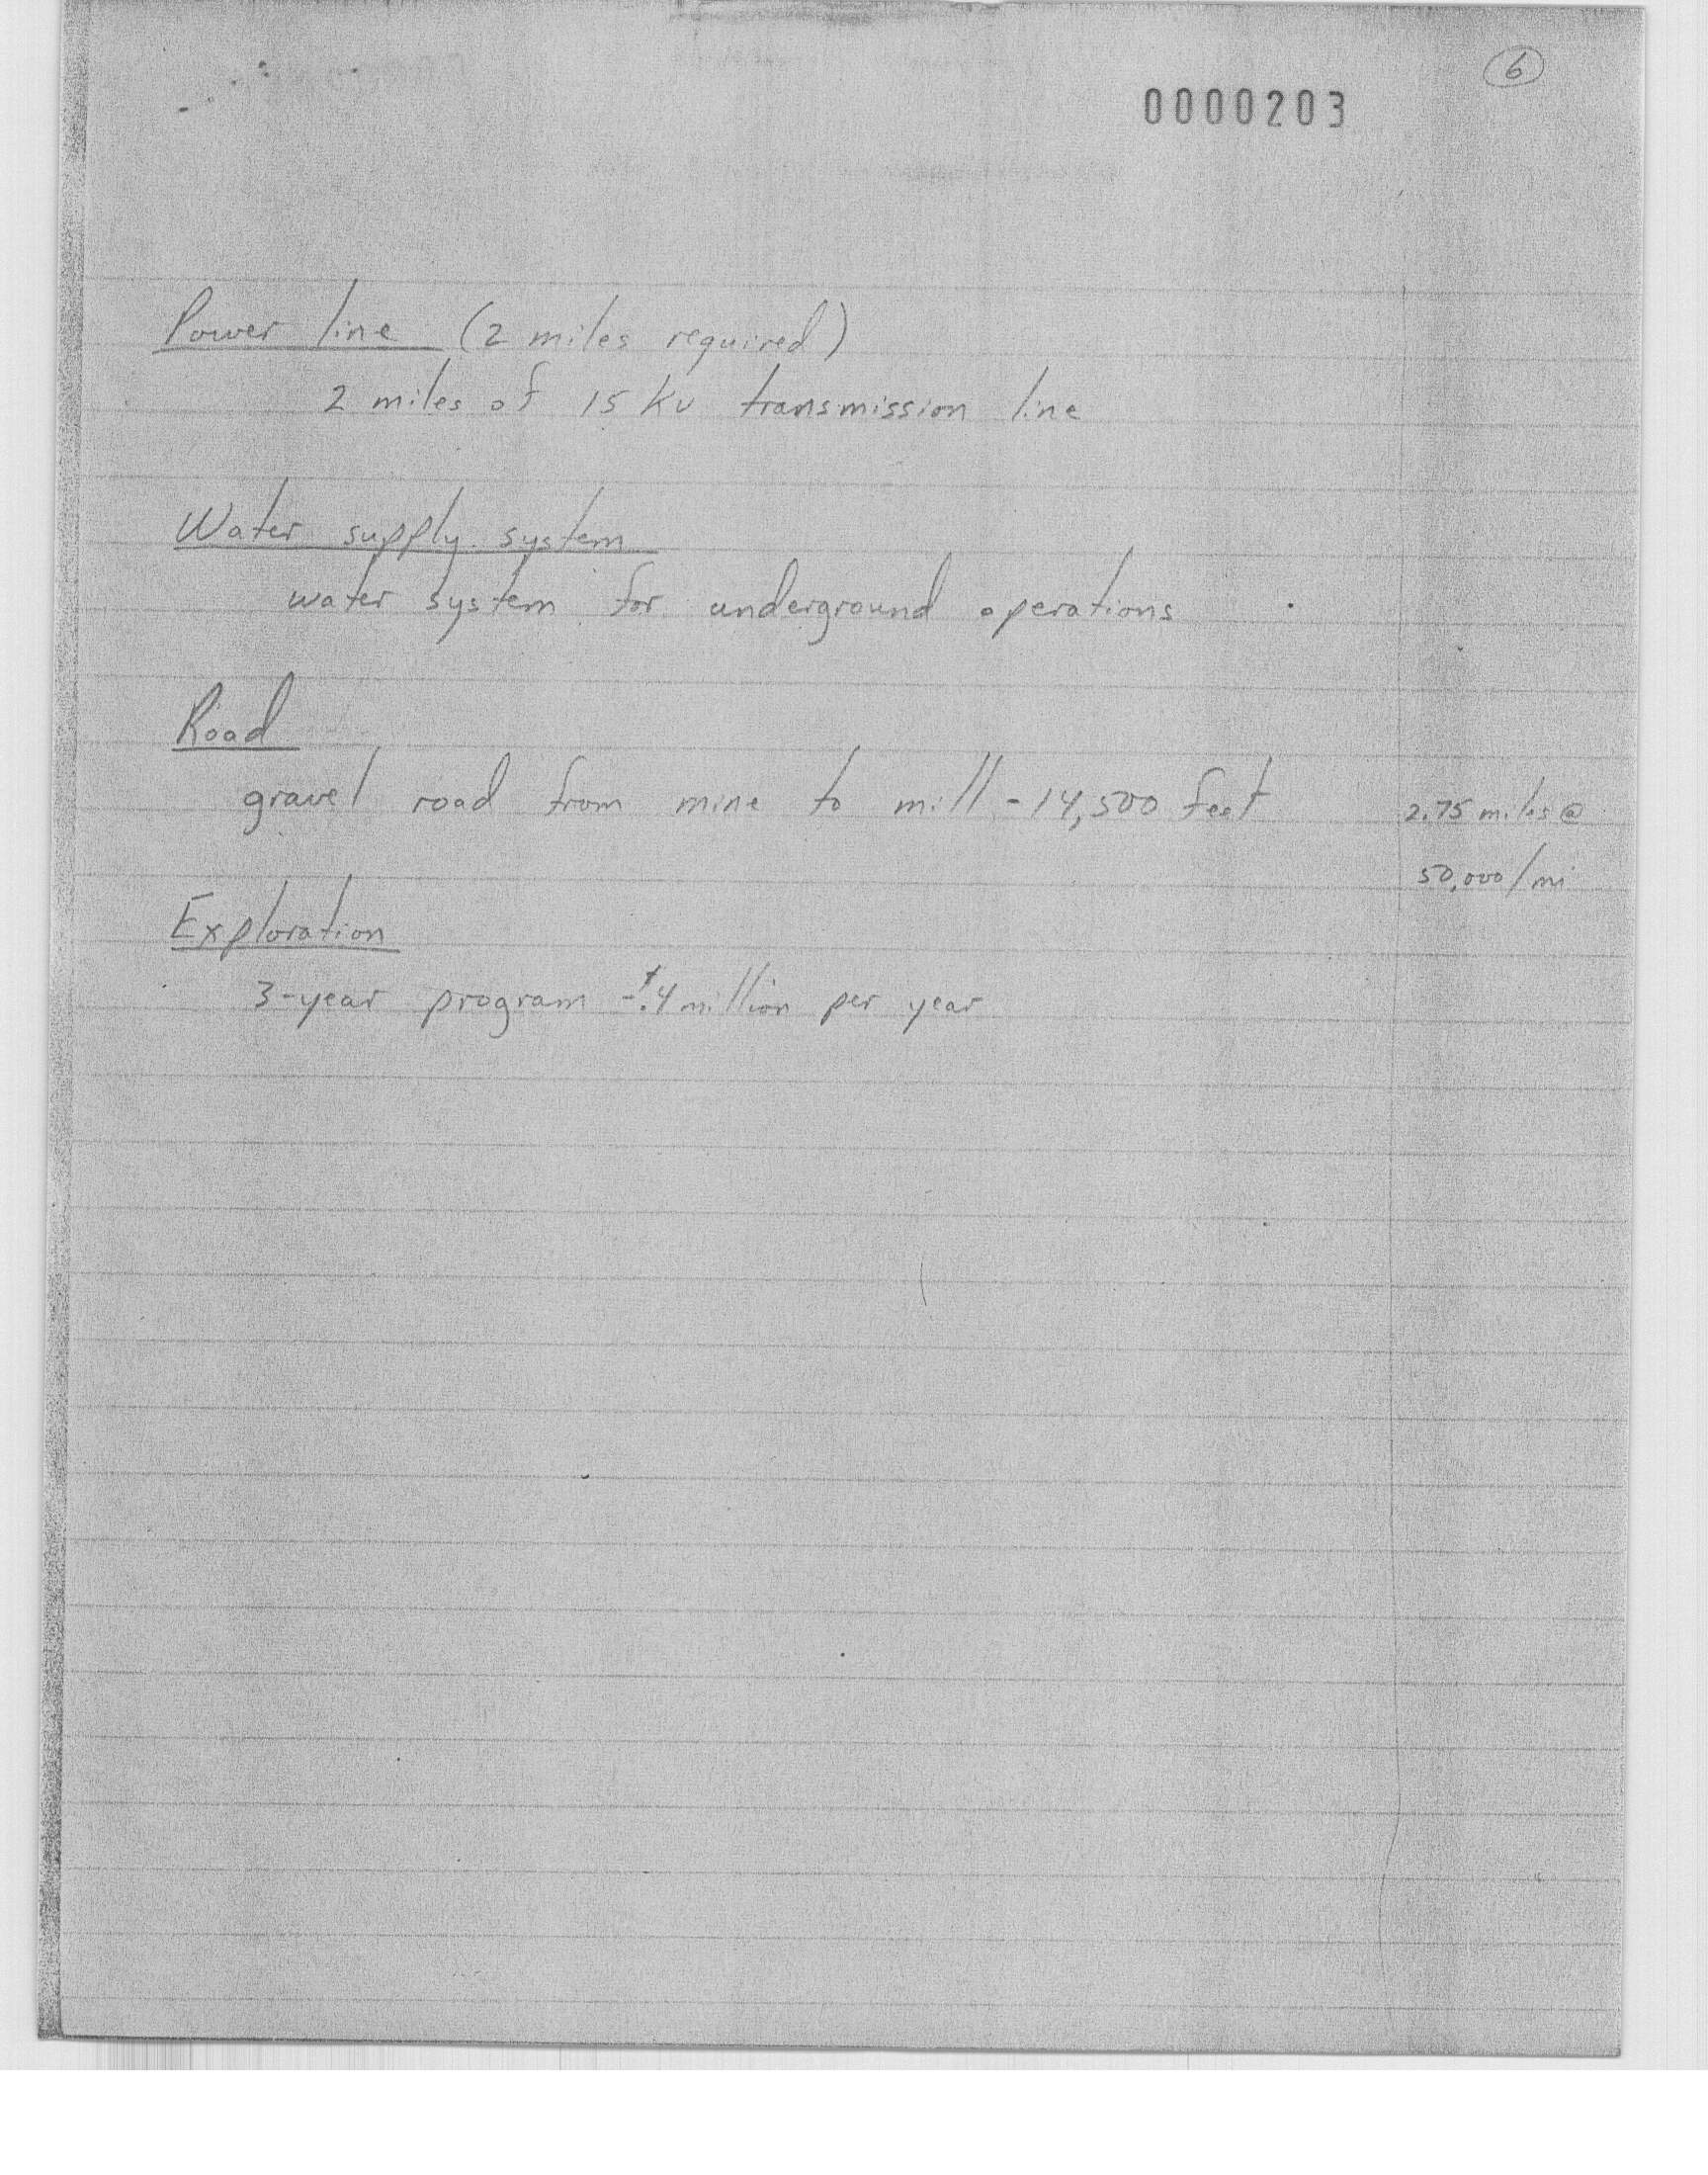 6
0000203
Power line (2 miles required)
2 miles of 15 KV transmission line
Water supply system
water system for underground operations
Road
gravel road from mine to mill - 14,500 feet 2.75 miles @
50,000/mi
Exploration
3-year program - .4 million per year